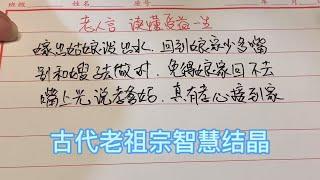 老人言 读懂受益一生
嫁出姑娘泼出水 回到娘家少多嘴
别和嫂子去做对 免得娘家回不去
嘴上光说孝多好 真有孝心接到家
古代老祖宗智慧结晶